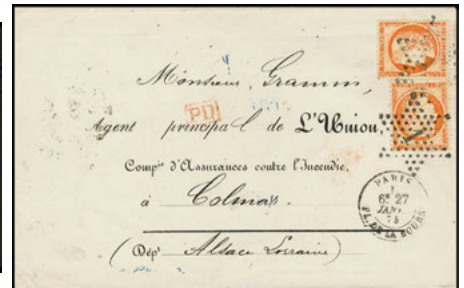 Monsieur Gramm,
PD
Agent principal de L'Union,
Compie d'Assurances contre l'Incendie,
à Colmar
(Dépt Alsace Lorraine)
PARIS
6E 27
JANV.
75
PL. DE LA BOURSE
1